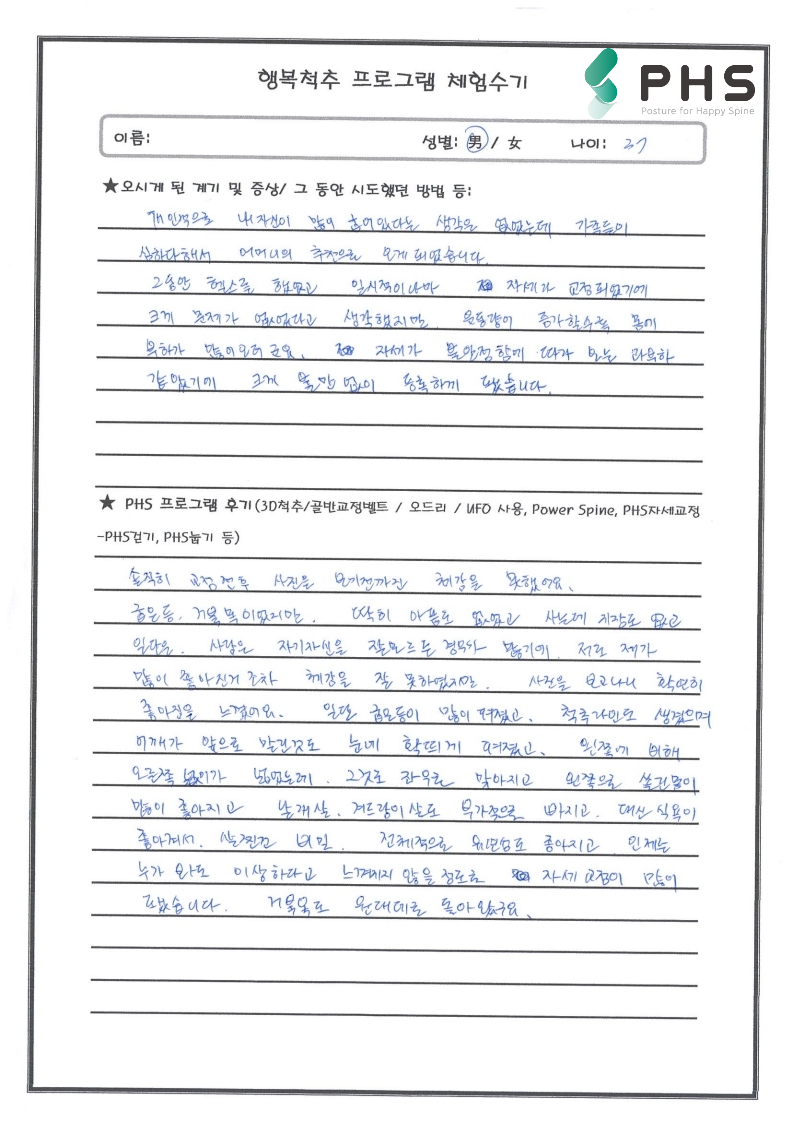 행복척추 프로그램 체험수기
PHS
Posture for Happy Spine
이름: 성별: 男 / 女 나이: 27
★오시게 된 계기 및 증상/ 그 동안 시도했던 방법 등:
개인적으로 내 자신이 많이 휘어있다는 생각은 없었는데 가족들이
심하다해서 어머니의 추천으로 오게 되었습니다.
그동안 헬스를 했었고 일시적이나마 자세가 교정되었기에
크게 문제가 없었다고 생각했지만. 운동량이 증가할수록 몸에
부하가 많이 오더군요. 자세가 불안정함에 따라 오는 과부하
같았기에 크게 불만 없이 등록하게 됐습니다.
★ PHS 프로그램 후기(3D척추/골반교정벨트 / 오드리 / UFO 사용, Power Spine, PHS자세교정
-PHS걷기, PHS눕기 등)
솔직히 교정전후 사진을 보기전까진 체감을 못했어요.
굽은등. 거북목이었지만. 딱히 아픔도 없었고 사는데 지장도 없고
일단은. 사람은 자기자신을 잘모르는 경우가 많기에. 저도 제가
많이 좋아진거 조차 체감을 잘 못하였지만. 사진을 보고나니 확연히
좋아짐을 느꼈어요. 일단 굽은등이 많이 펴졌고. 척추라인도 생겼으며
어깨가 앞으로 말린것도 눈에 확띄게 펴졌고. 왼쪽에 비해
오른쪽 이가 넓었는데. 그것도 좌우로 맞아지고 왼쪽으로 쏠린몸이
많이 좋아지고 날개살. 겨드랑이살도 부가적으로 빠지고. 대신 식욕이
좋아져서. 살찐건 비밀. 전체적으로 뒤모습도 좋아지고 인제는
누가 와도 이상하다고 느껴지지 않을 정도로 자세 교정이 많이
됐습니다. 거북목도 원래대로 돌아왔구요.